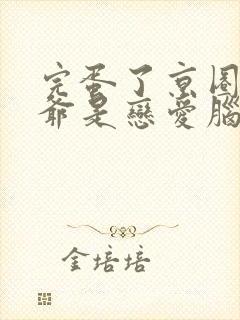 完蛋了京圈
爺是戀愛腦
金培培